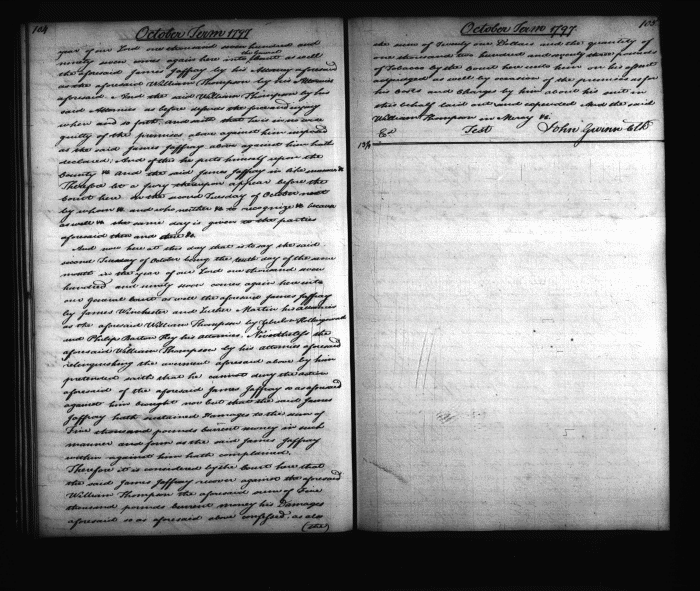 104
October Term 1797
year of our Lord one thousand seven hundred and
ninety seven comes again here into the Court as well
the aforesaid James Jaffray by his Attorney aforesaid
as the aforesaid William Thompson by his Attornies
aforesaid. And the said William Thompson by his
said Attornies as before defends the force and injury
when and so forth: and saith that he is in no wise
guilty of the premises above against him imposed
as the said James Jaffray above against him hath
declared. And of this he puts himself upon the
County &c And the said James Jaffray in like manner &c
Therefore let a jury thereupon appear before the
Court here on the second Tuesday of October next
by whom &c and who neither &c to recognize &c because
as well &c the same day is given to the parties
aforesaid then and there &c.
And now here at this day that is to say the said
second Tuesday of October being the tenth day of the same
month in the year of our Lord one thousand seven
hundred and ninety seven comes again here into
our general Court as well the aforesaid James Jaffray
by James Winchester and Luther Martin his attornies
as the aforesaid William Thompson by Hollingsworth
and Philip Barton Key his attornies. Nevertheless the
aforesaid William Thompson by his attornies aforesaid
relinquishing the averment aforesaid above by him
pretended saith that he cannot deny the action
aforesaid of the aforesaid James Jaffray so as aforesaid
against him brought nor but that the said James
Jaffray hath sustained Damages to the sum of
Five thousand pounds current money in such
manner and form as the said James Jaffray
within against him hath complained.
Therefore it is considered by the Court here that
the said James Jaffray recover against the aforesaid
William Thompson the aforesaid sum of Five
thousand pounds current money his Damages
aforesaid so as aforesaid above confessed: as also
(the)
105
October Term 1797
the sum of Twenty one Dollars and the quantity of
one thousand two hundred and seventy three pounds
of Tobacco by the Court here unto him on his assent
adjudged as well by occasion of the premises as for
his Costs and Charges by him about his suit in
this behalf laid out and expended And the said
William Thompson in Mercy &c.
Test John Gwinn Clk